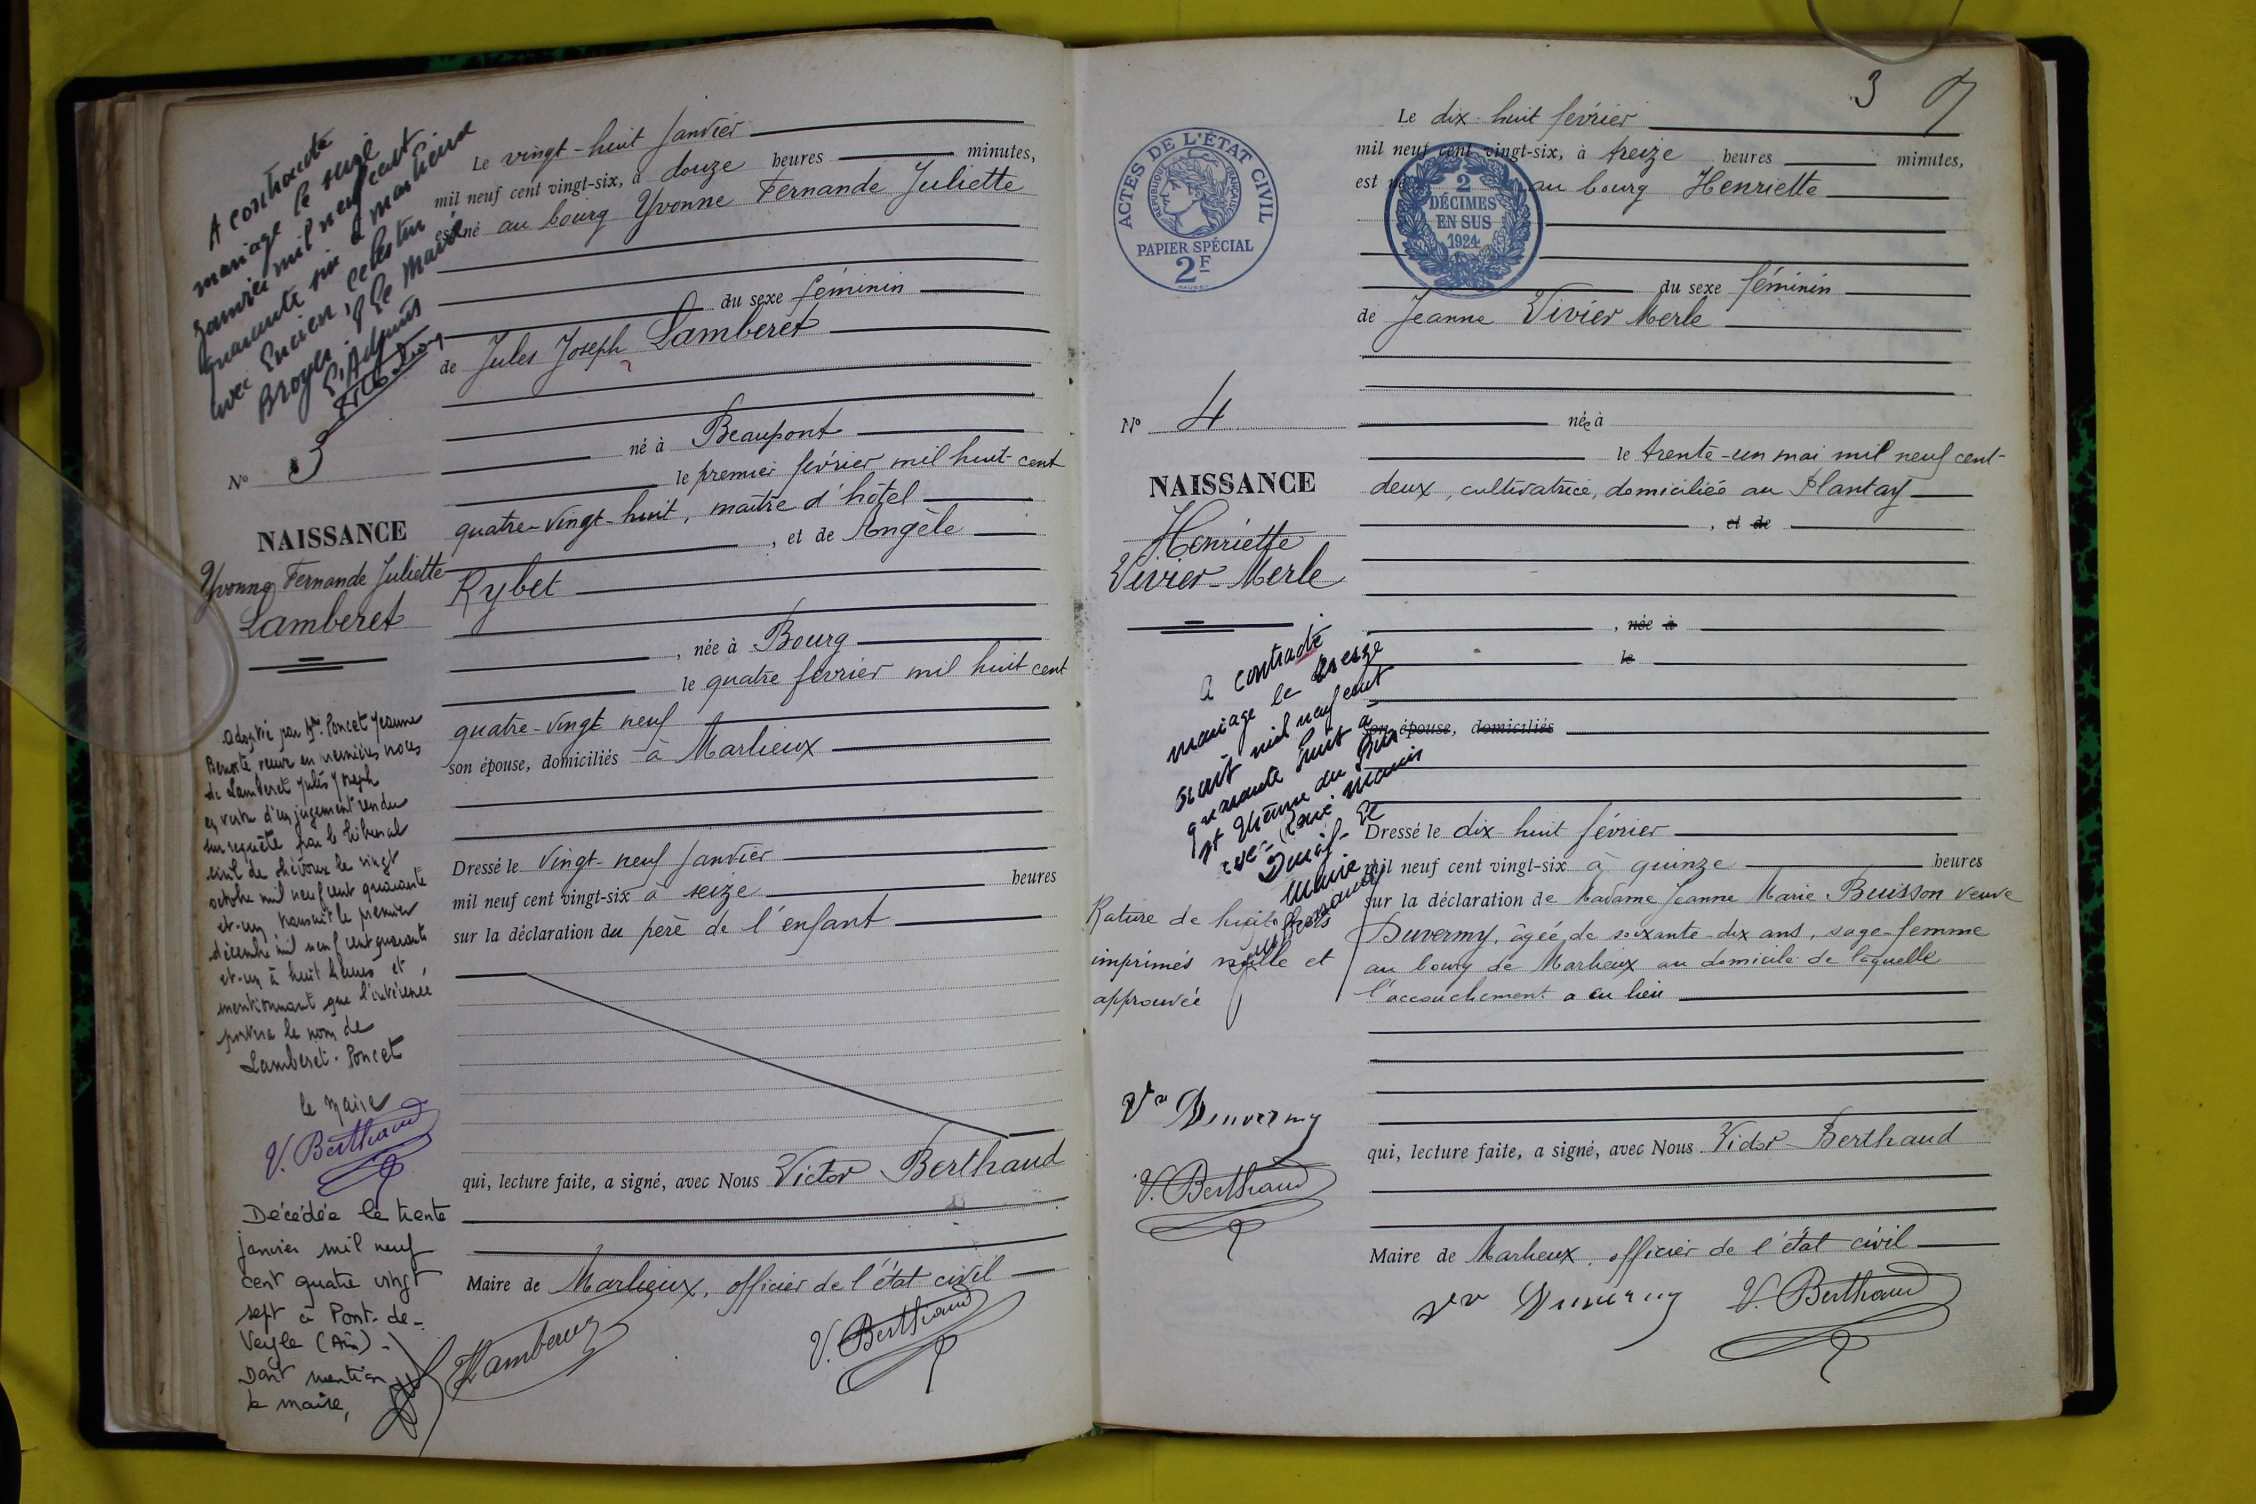 A contracté
mariage le seize
janvier mil neuf cent
quarante six à Marlieux
avec Lucien, Célestin
Broyer. Le Maire
L'Adjoint
N° 3
NAISSANCE
Yvonne Fernande Juliette
Lamberet
adopté par Mme Poncet Jeanne
Benoite veuve en noces
de Lamberet Jules Joseph
en vertu d'un jugement rendu
sur requête par le tribunal
civil de Trévoux le vingt
octobre mil neuf cent quarante
et-un, transcrit le premier
décembre mil neuf cent quarante
et-un à huit heures et
mentionnant que l'intéressée
portera le nom de
Lamberet-Poncet
le Maire
V. Berthaud
Décédée le trente
janvier mil neuf
cent quatre vingt
sept à Pont-de-
Veyle (Ain) -
Dont mention
le maire,
Le vingt-huit Janvier
mil neuf cent vingt-six, à douze heures minutes,
est né au bourg Yvonne Fernande Juliette
du sexe féminin
de Jules Joseph Lamberet
né à Beaupont
le premier février mil huit cent
quatre-vingt-huit, maître d'hôtel
, et de Angèle
Rybet
, née à Bourg
le quatre février mil huit cent
quatre-vingt neuf
son épouse, domiciliés à Marlieux
Dressé le vingt-neuf Janvier
mil neuf cent vingt-six à seize heures
sur la déclaration du père de l'enfant
qui, lecture faite, a signé, avec Nous Victor Berthaud
Maire de Marlieux, officier de l'état civil
Lamberet V. Berthaud
3
ACTES DE L'ÉTAT CIVIL
RÉPUBLIQUE FRANÇAISE
PAPIER SPÉCIAL
2F
2
DÉCIMES
EN SUS
1924
N° 4
NAISSANCE
Henriette
Vivier-Merle
a contracté
mariage le treize
août mil neuf cent
quarante huit à
St Étienne du Bois
avec René Marius
Le
Maire
Rature de huit
imprimés nulle et
approuvée
Vve Duvermy
V. Berthaud
Le dix-huit février
mil neuf cent vingt-six, à treize heures minutes,
est né au bourg Henriette
du sexe féminin
de Jeanne Vivier Merle
née à
le trente-un mai mil neuf cent-
deux, cultivatrice, domiciliée au Plantay
, et de
, née à
le
son épouse, domiciliés
Dressé le dix-huit février
mil neuf cent vingt-six à quinze heures
sur la déclaration de Madame Jeanne Marie Buisson veuve
Duvermy, âgée de soixante-dix ans, sage-femme
au bourg de Marlieux au domicile de laquelle
l'accouchement a eu lieu
qui, lecture faite, a signé, avec Nous Victor Berthaud
Maire de Marlieux, officier de l'état civil
Vve Duvermy V. Berthaud